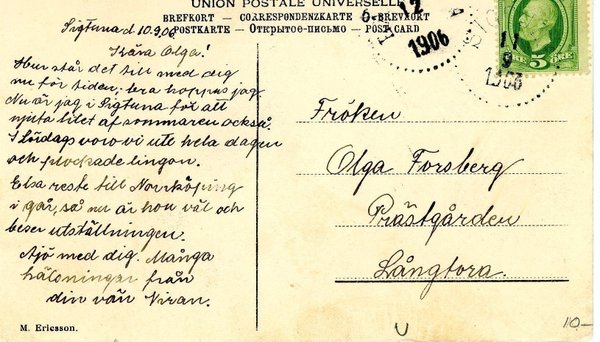 UNION POSTALE UNIVERSELLE
BREFKORT – CORRESPONDENZKARTE – BREVKORT
POSTKARTE – Открытое-письмо – POST CARD
Sigtuna d 10.9.06
Kära Olga!
Hur står det till med dig
nu för tiden; bra hoppas jag.
Nu är jag i Sigtuna för att
njuta litet af sommaren också.
I lördags voro vi ute hela dagen
och plockade lingon.
Elsa reste till Norrköping
i går, så nu är hon väl och
beser utställningen.
Ajö med dig. Många
hälsningar från
din vän Viran.
M. Ericsson.
12
1906
11
9
1906
5 ÖRE
Fröken
Olga Forsberg
Prästgården
Långtora.
10.–